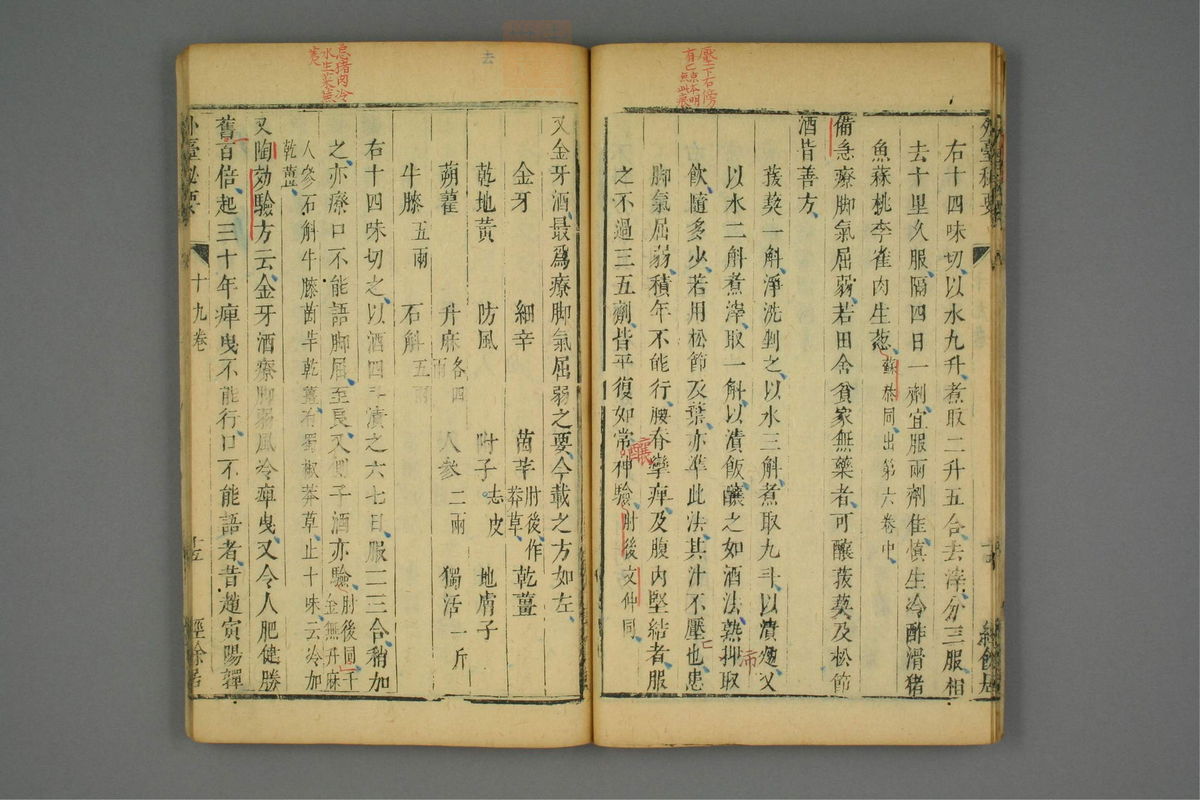 右十四味切以水九升煮取二升五合去滓分三服相
去十里久服隔四日一劑宜服兩劑佳慎生冷酢滑猪
魚蒜桃李雀肉生葱蘇恭同出第六卷中
備急療脚氣屈弱若田舍貧家無藥者可釀菝葜及松節
酒皆善方
菝葜一斛淨洗剉之以水三斛煮取九斗以漬麴又
以水二斛煮滓取一斛以漬飯釀之如酒法熟押取
飲隨多少若用松節及葉亦准此法其汁不壓也患
脚氣屈弱積年不能行腰脊攣痺及腹內堅結者服
之不過三五劑皆平復如常神驗肘後文仲同
又金牙酒最爲療脚氣屈弱之要今載之方如左
金牙 細辛 茵芋 肘後作莽草 乾薑
乾地黃 防風 附子去皮 地膚子
蒴藋 升麻各四兩 人參二兩 獨活一斤
牛膝五兩 石斛五兩
右十四味切之以酒四斗漬之六七日服二三合稍加
之亦療口不能語脚屈至良又側子酒亦驗肘後同千金無升麻
人參石斛牛膝茵芋乾薑有蜀椒莽草止十味云冷加
乾薑
又陶効驗方云金牙酒療脚弱風冷痺曳又令人肥健勝
舊百倍起三十年痺曳不能行口不能語者昔趙寅陽韗
外臺秘要 十九卷 經餘居